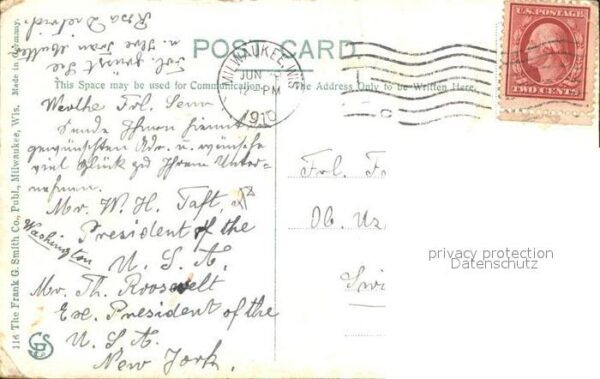 POST CARD
This Space may be used for Communication.
The Address Only to be Written Here.
MILWAUKEE, WIS
JUN
12 PM
1910
U.S. POSTAGE
TWO CENTS
116 The Frank G. Smith Co., Publ., Milwaukee, Wis. Made in Germany.
Werthe Frl. Senn
Sende Ihnen hiermit
gewünschten Adr. u. wünsche
viel Glück zu Ihrem Unter-
nehmen.
Mr. W. H. Taft,
Washington
President of the
U. S. A.
Mr. Th. Roosevelt
Exe. President of the
U. S. A.
New York.
Frl. F
Ob. Uz
Swi
privacy protection
Datenschutz